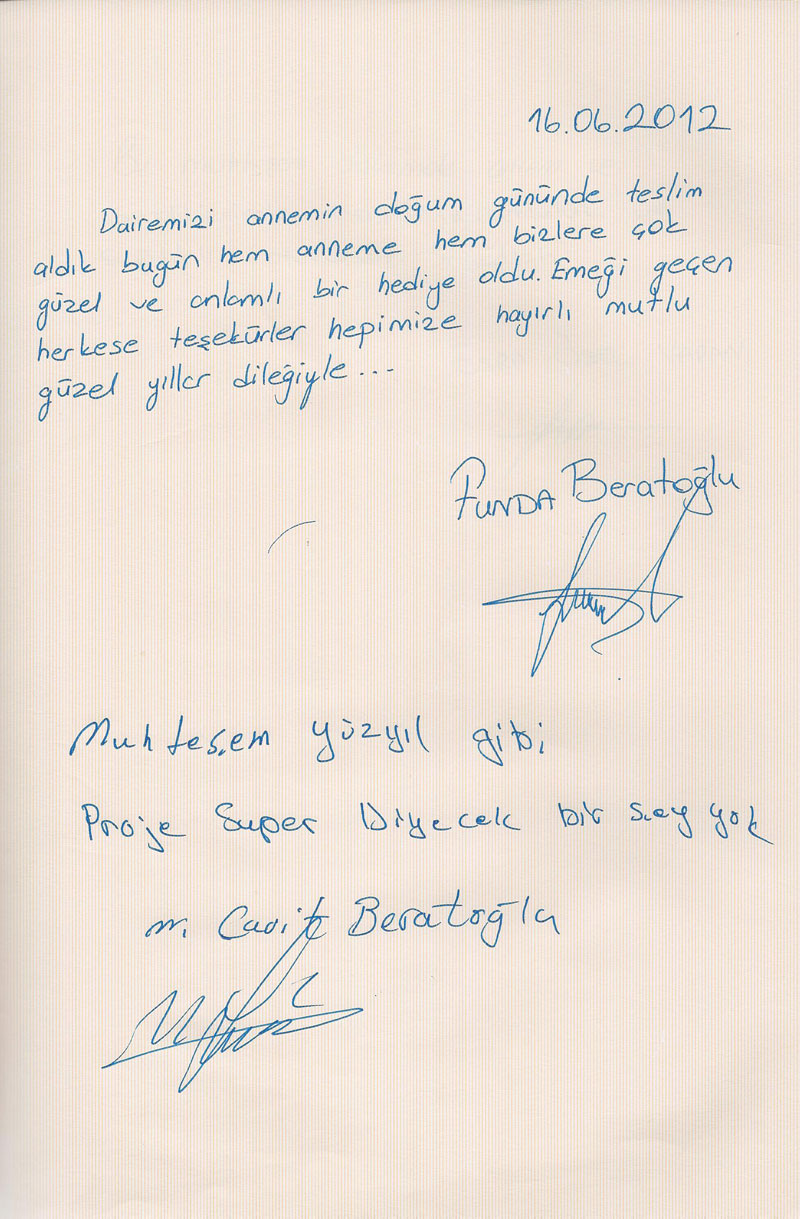 16.06.2012
Dairemizi annemin doğum gününde teslim
aldık bugün hem anneme hem bizlere çok
güzel ve anlamlı bir hediye oldu. Emeği geçen
herkese teşekürler hepimize hayırlı mutlu
güzel yıllar dileğiyle...
FUNDA Beratoğlu
Muhteşem yüzyıl gibi
Proje Super Diyecek bir şey yok
m. Cavit Beratoğlu